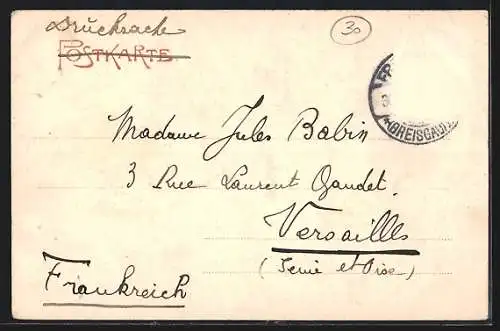 Drucksache
30
POSTKARTE
FR
(BREISGAU)
Madame Jules Babin
3 Rue Laurent Gaudet.
Versailles
(Seine et Oise)
Frankreich